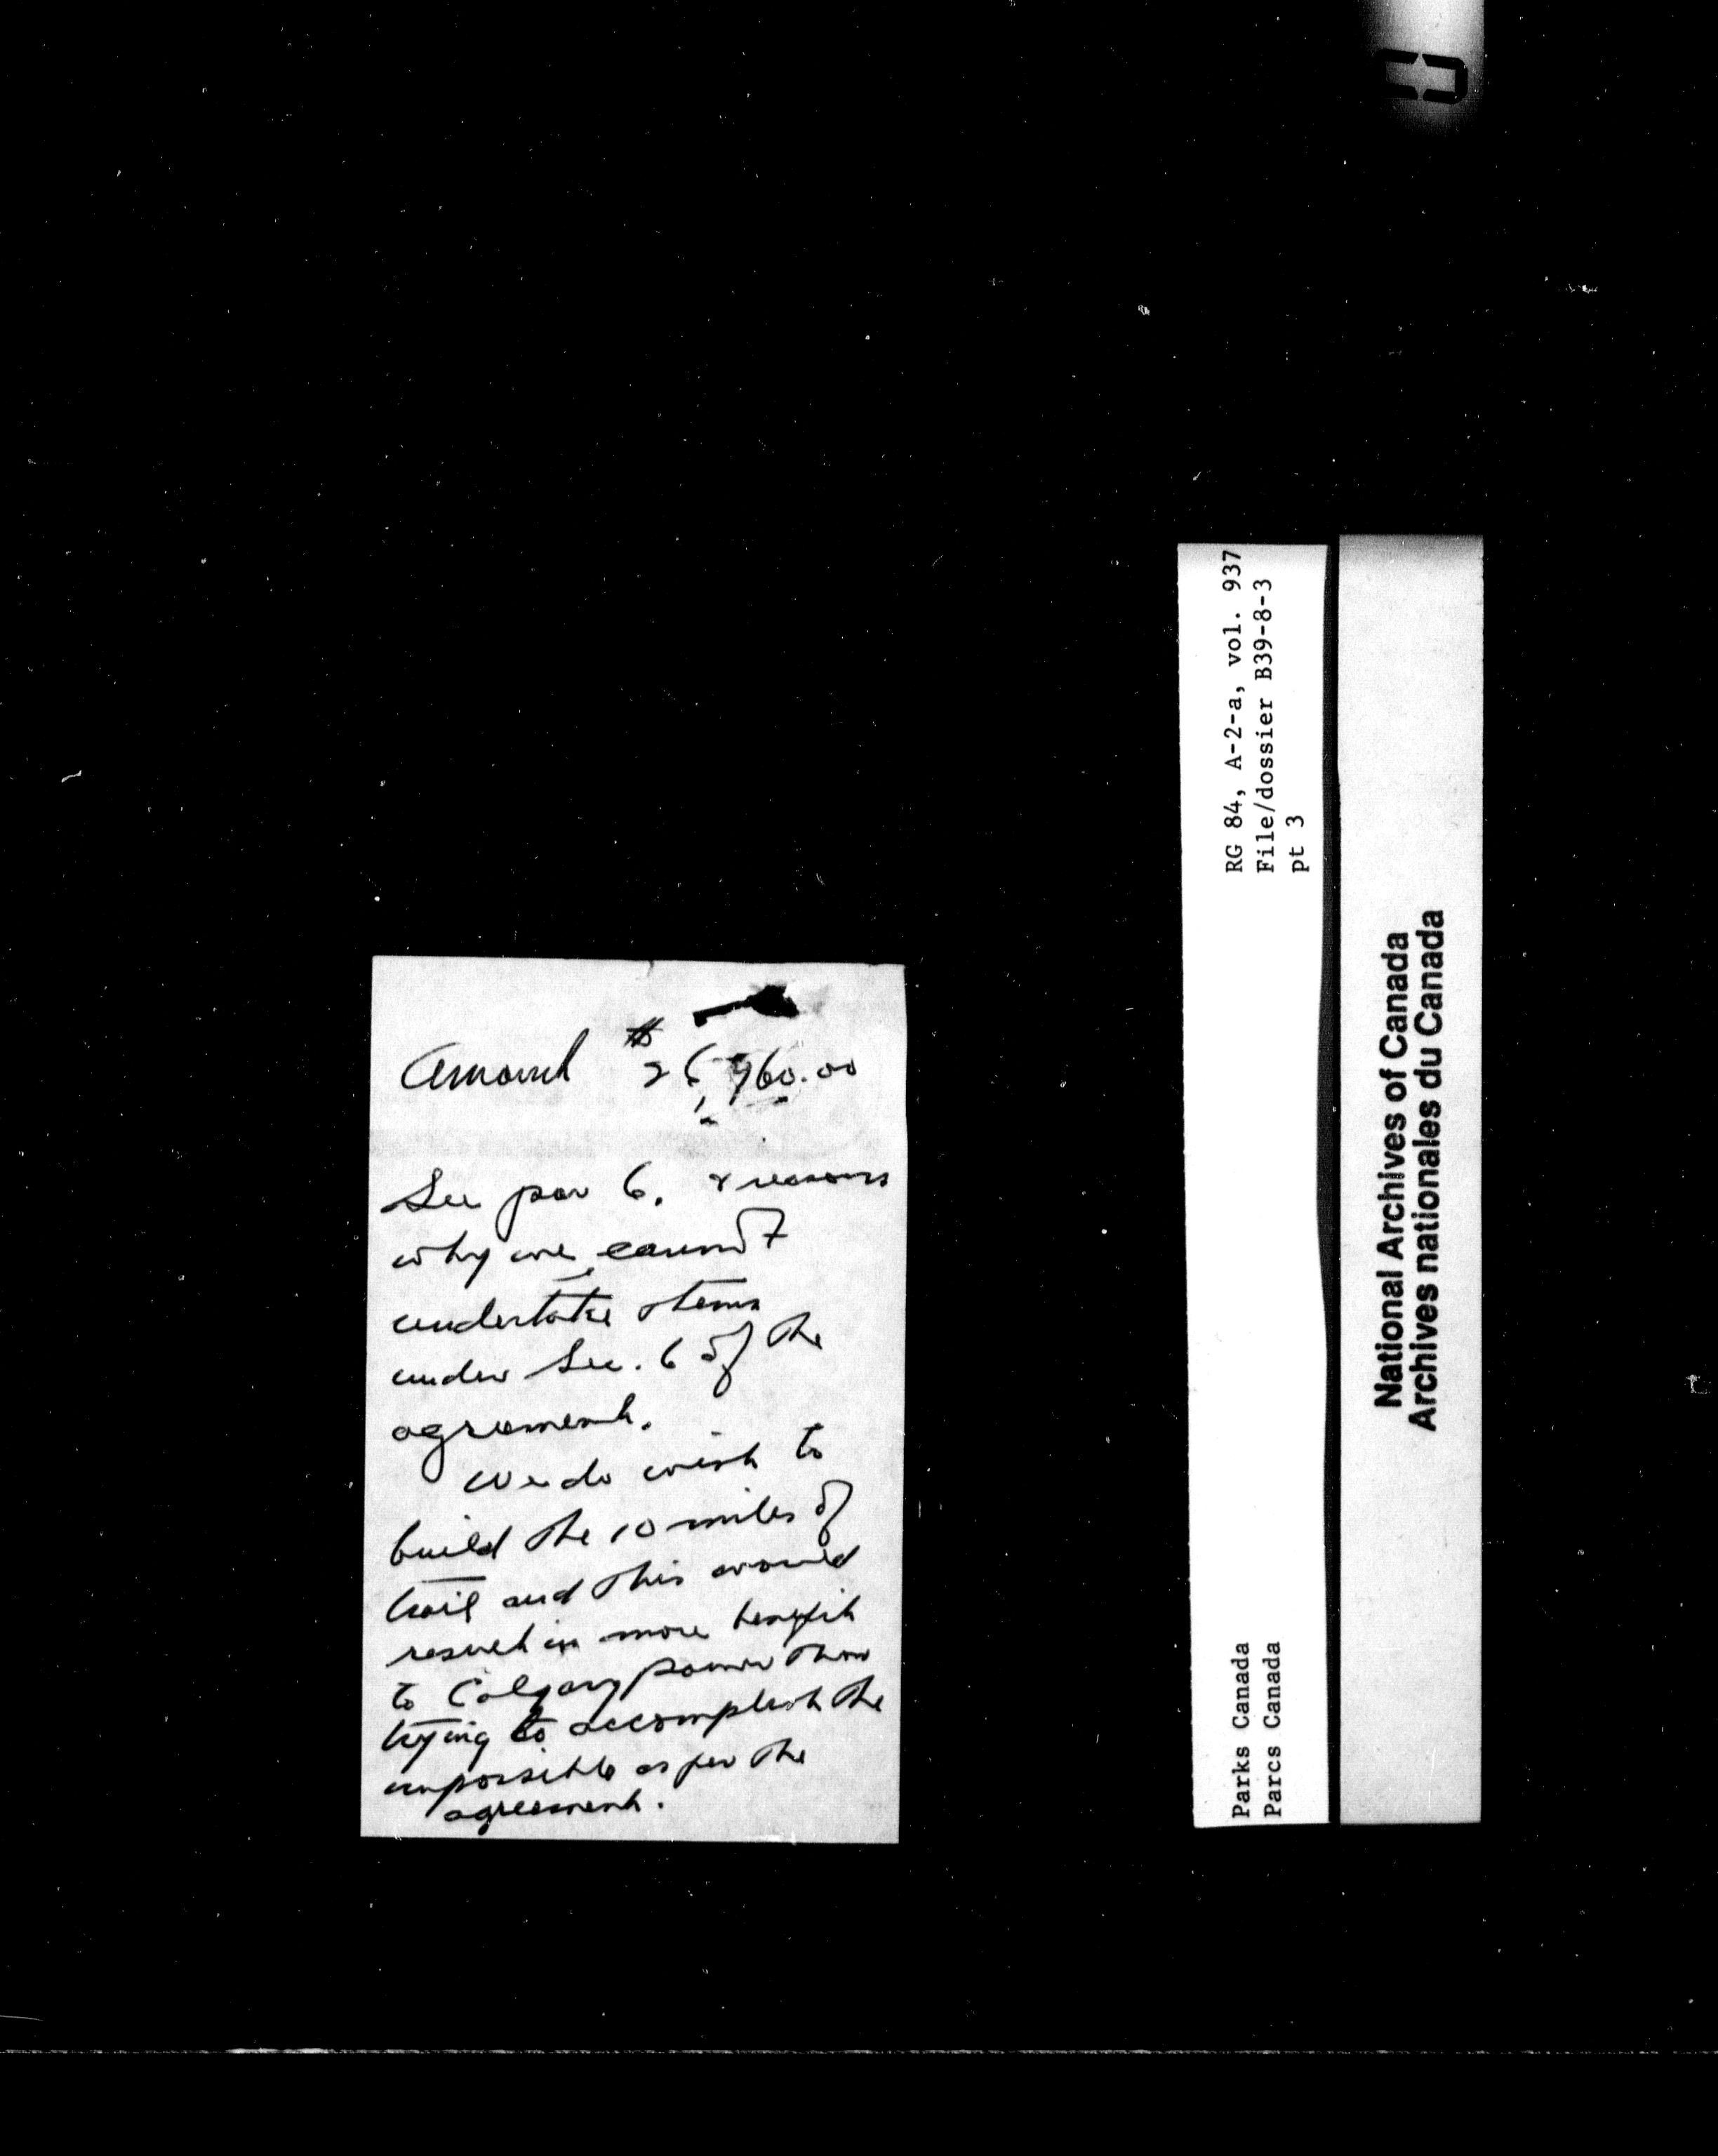 Amount $
960.00
See par 6. & reasons
why we cannot
undertake items
under Sec. 6 of the
agreement.
We do wish to
build the 10 miles of
trail and this would
result in more benefit
to Calgary Power than
trying to accomplish the
impossible as per the
agreement.
RG 84, A-2-a, vol. 937
File/dossier B39-8-3
pt 3
Parks Canada
Parcs Canada
National Archives of Canada
Archives nationales du Canada